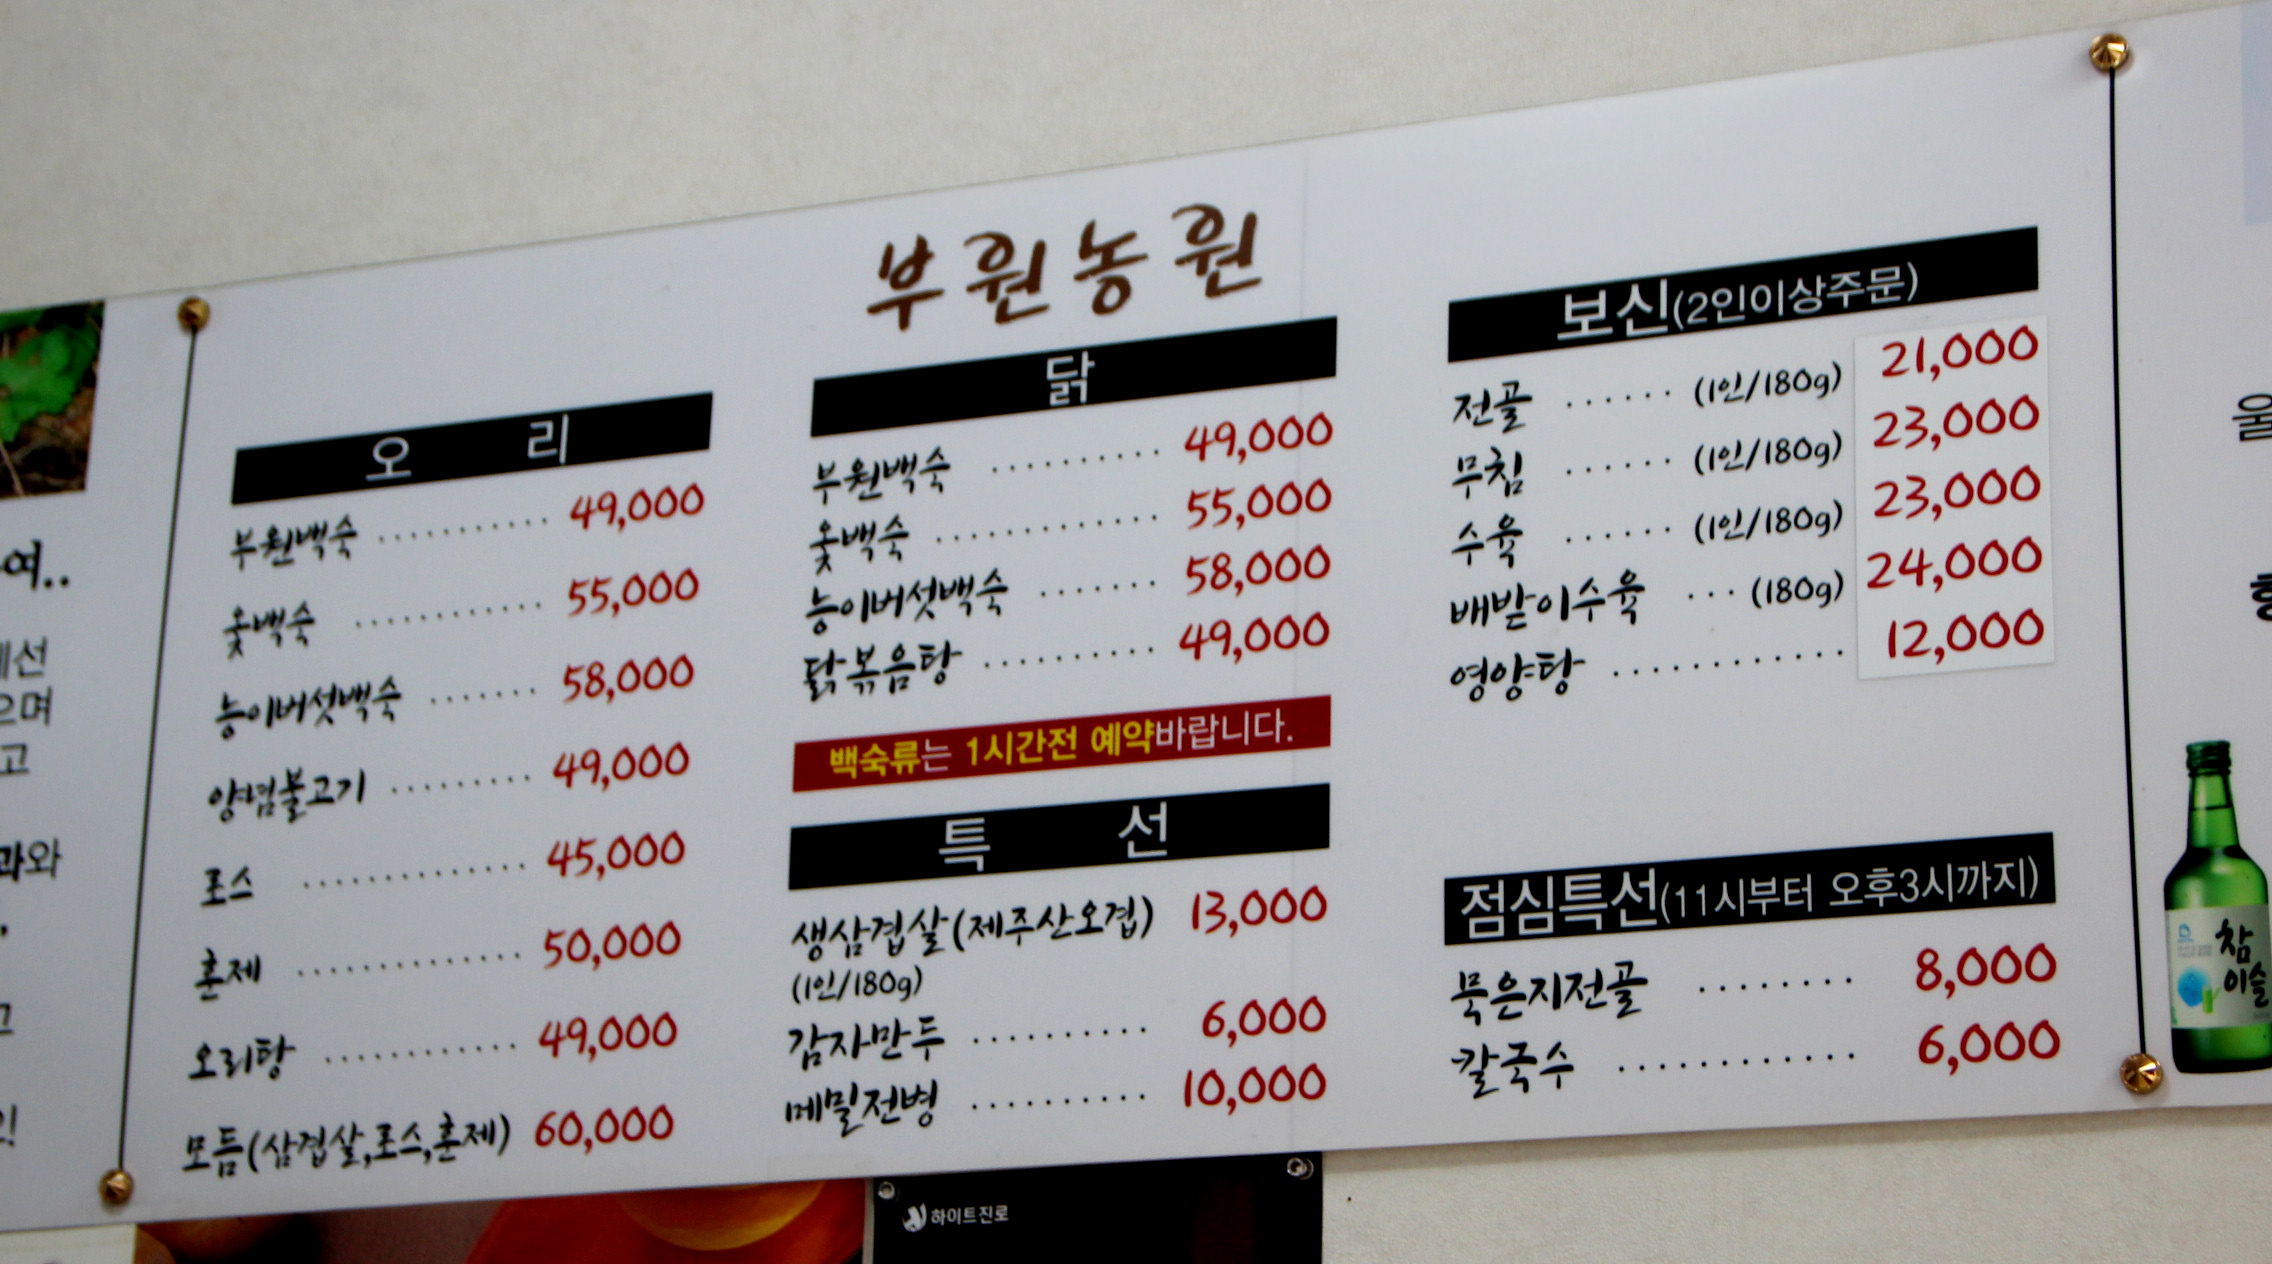 부원농원
오 리
부원백숙 ·········· 49,000
옻백숙 ············ 55,000
능이버섯백숙 ······· 58,000
양념불고기 ········· 49,000
로스 ·············· 45,000
훈제 ·············· 50,000
오리탕 ············ 49,000
모듬(삼겹살,로스,훈제) 60,000
닭
부원백숙 ·········· 49,000
옻백숙 ············ 55,000
능이버섯백숙 ······· 58,000
닭볶음탕 ·········· 49,000
백숙류는 1시간전 예약바랍니다.
특 선
생삼겹살(제주산오겹) 13,000
(1인/180g)
감자만두 ·········· 6,000
메밀전병 ·········· 10,000
보신(2인이상주문)
전골 ······ (1인/180g) 21,000
무침 ······ (1인/180g) 23,000
수육 ······ (1인/180g) 23,000
배받이수육 ··· (180g) 24,000
영양탕 ············ 12,000
점심특선(11시부터 오후3시까지)
묵은지전골 ········ 8,000
칼국수 ············ 6,000
여..
으며
고
과와
울
참
이슬
하이트진로